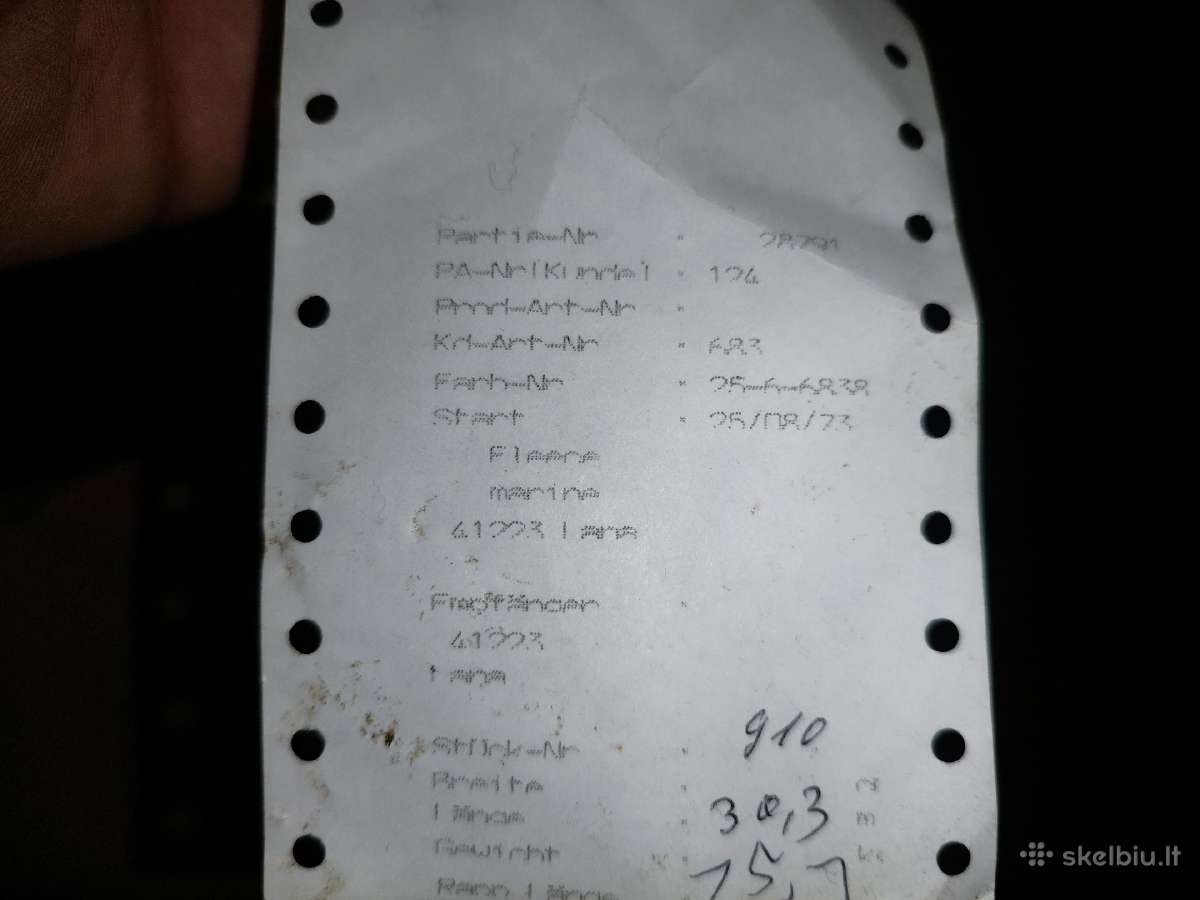 Partie-Nr : 28291
PA-Nr(Kunde) : 124
Prod-Art-Nr :
Kd-Art-Nr : 683
Farb-Nr : 25-6-6838
Start : 25/08/23
Fleece
marine
41223 Lana
Empfänger :
41223
Lana
Stück-Nr : 910
Breite :
Länge : 30,3 m
Gewicht : kg
Rapp Länge
skelbiu.lt